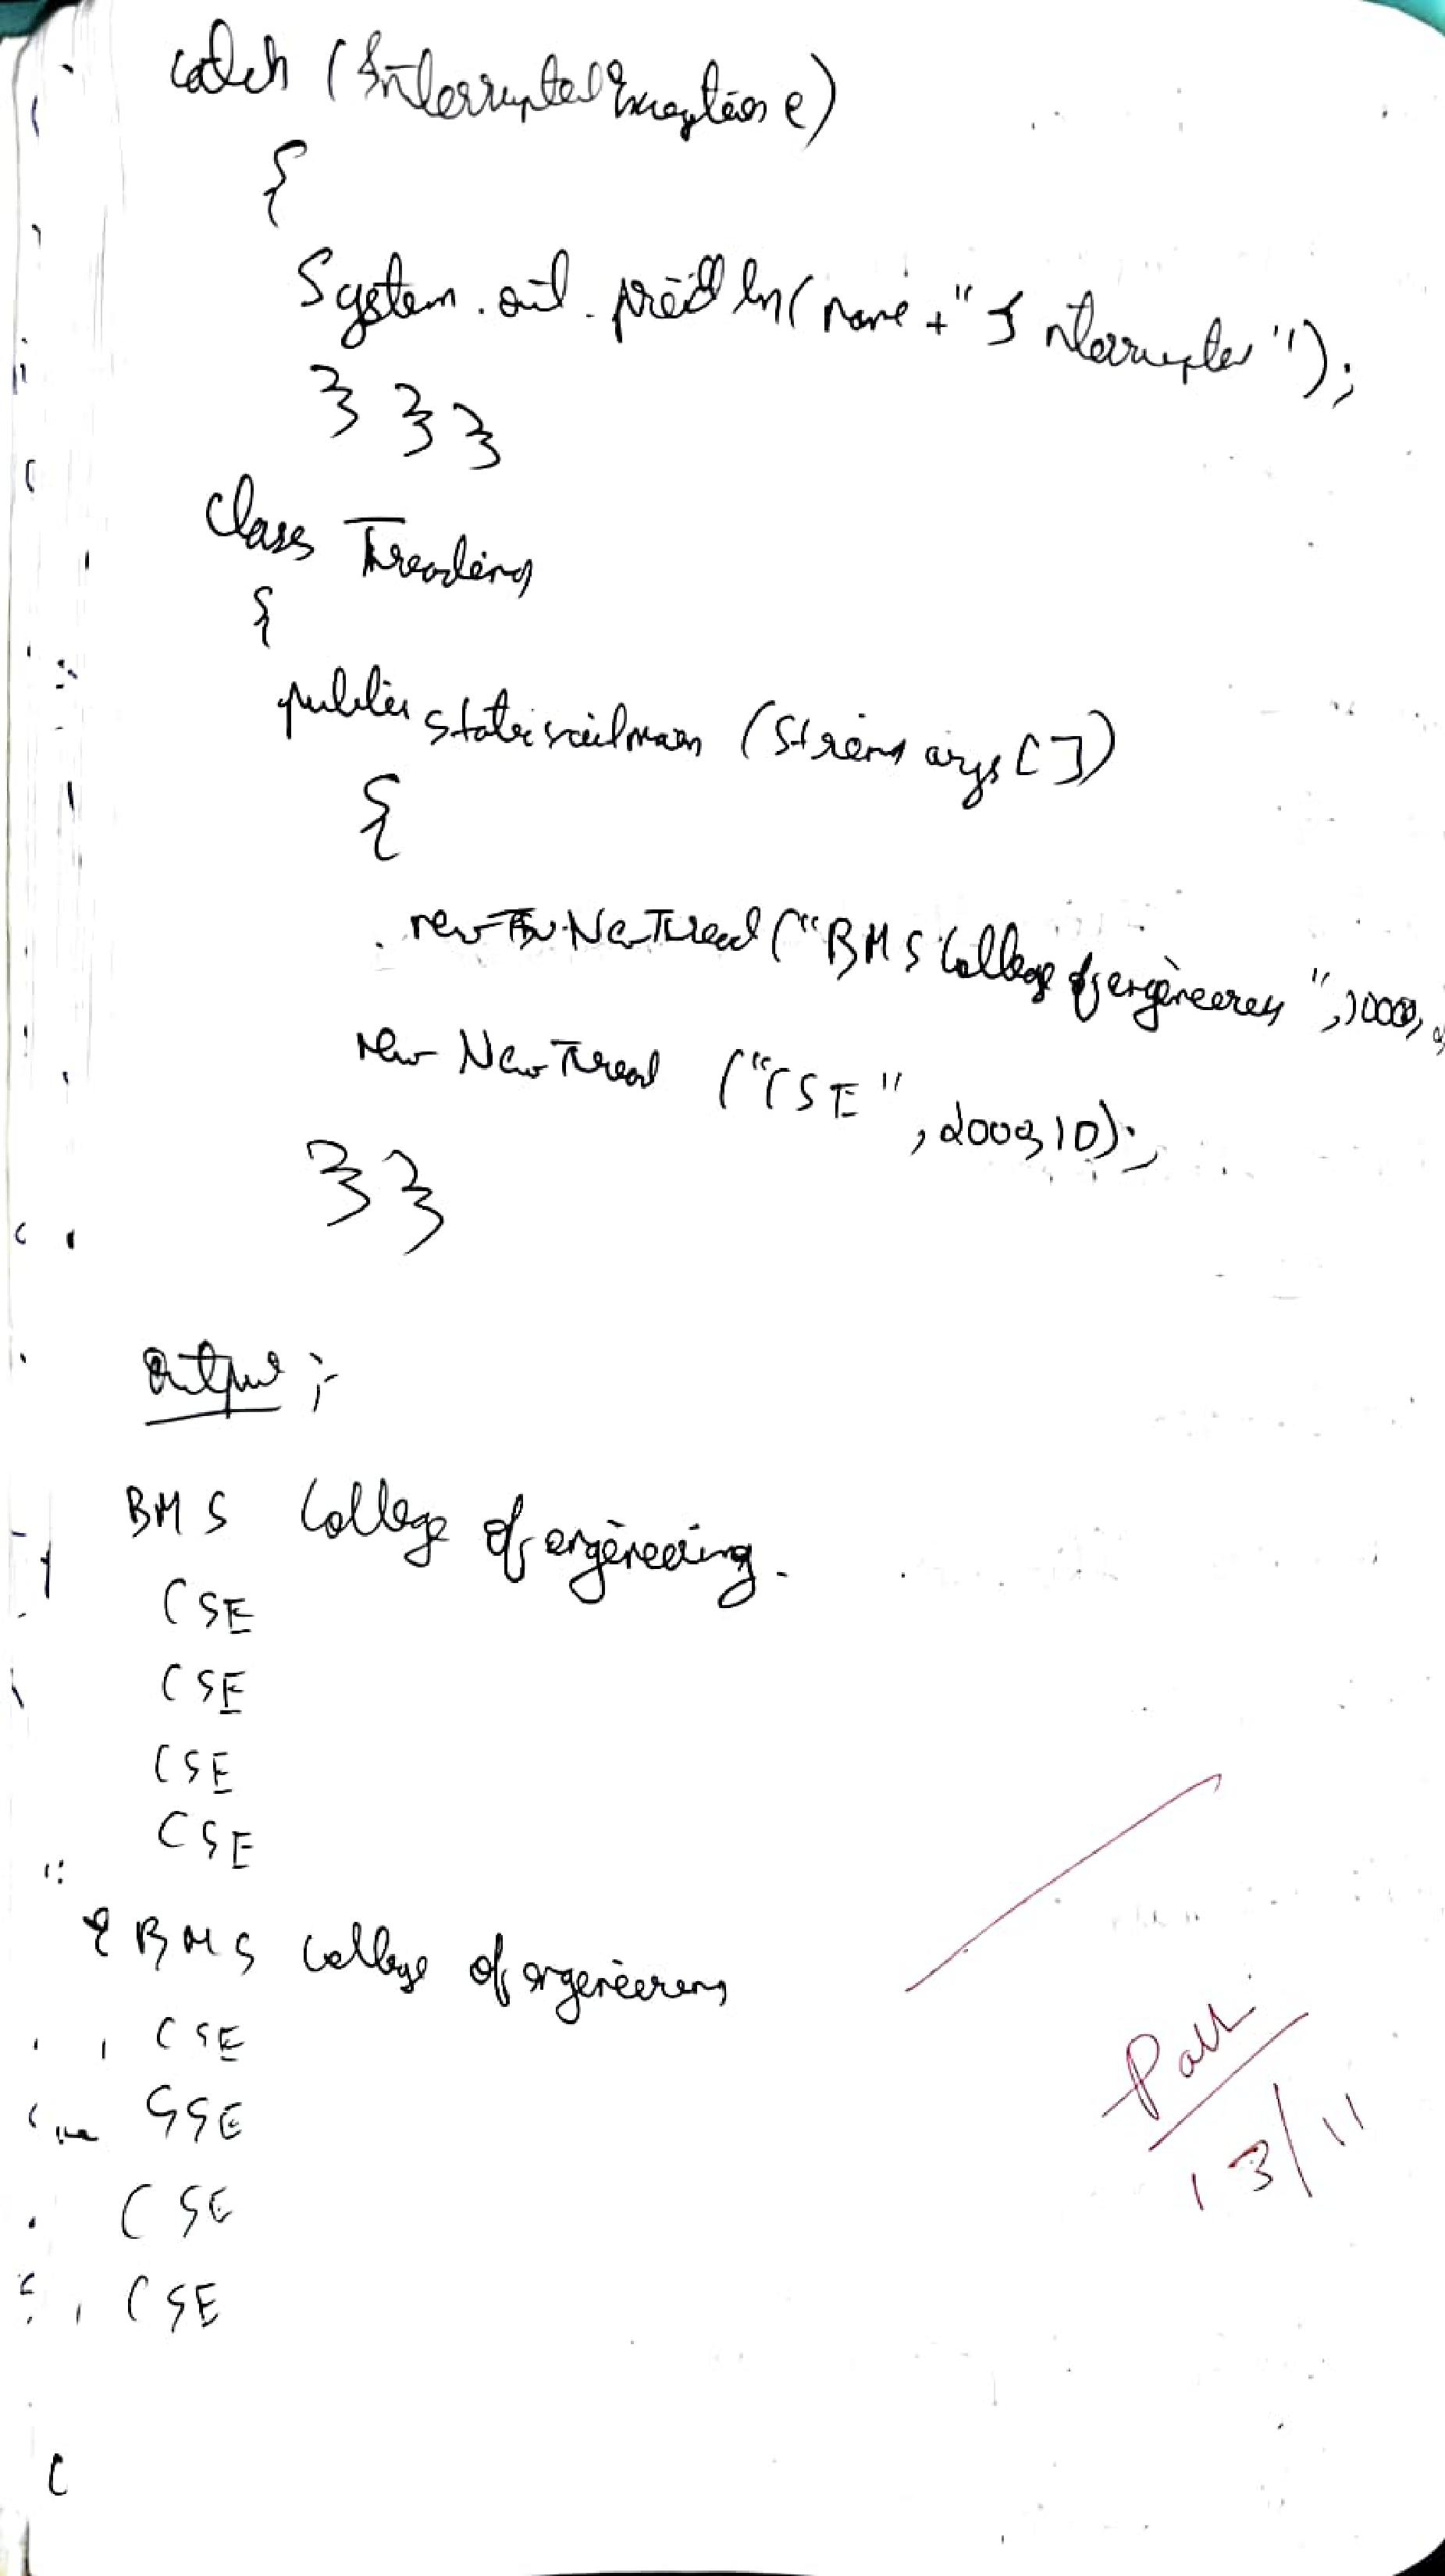 catch (InterruptedException e)
{
System.out.println(name + "Interrupted");
} } }
class Threading
{
public static void main (String args [])
{
new NewThread ("BMS College of engineering", 10000,
new NewThread ("CSE", 2000, 10);
} }
Output :-
BMS College of engineering.
CSE
CSE
CSE
CSE
BMS College of engineering
CSE
CSE
CSE
CSE
13/11